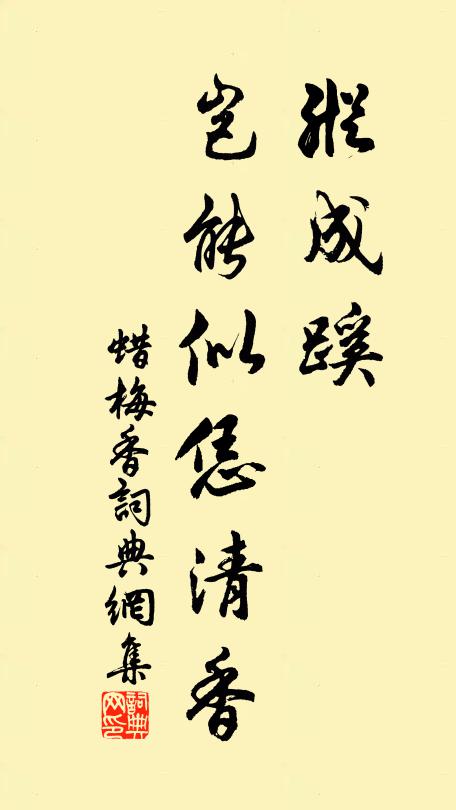 縱成蹊
豈能似恁清香
蜡梅香詞典網集
詞典网印